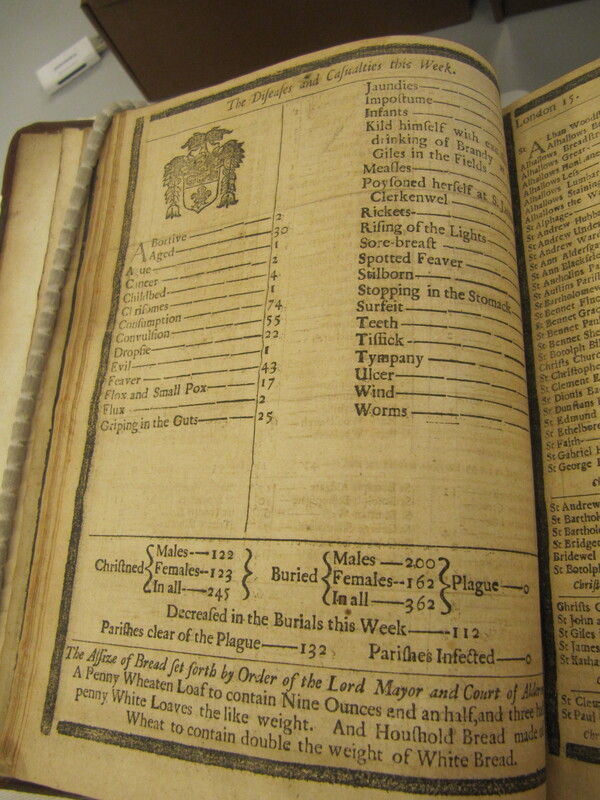 The Diſeaſes and Caſualties this Week.
ABortive 2
Aged 30
Ague 1
Cancer 2
Childbed 4
Chriſomes 1
Conſumption 74
Convulſion 55
Dropſie 22
Evil 1
Feaver 43
Flox and Small Pox 17
Flux 2
Griping in the Guts 25
Jaundies
Impoſtume
Infants
Kild himſelf with
drinking of Brandy
Giles in the Fields
Meaſles
Poyſoned herſelf at S.
Clerkenwel
Rickets
Riſing of the Lights
Sore-breaſt
Spotted Feaver
Stilborn
Stopping in the Stomack
Surfeit
Teeth
Tiſſick
Tympany
Ulcer
Wind
Worms
Chriſtned Males 122
Females 123
In all 245
Buried Males 200
Females 162
In all 362
Plague 0
Decreaſed in the Burials this Week 112
Pariſhes clear of the Plague 132 Pariſhes Infected 0
The Aſſize of Bread ſet forth by Order of the Lord Mayor and Court of
A Penny Wheaten Loaf to contain Nine Ounces and an half, and three
penny White Loaves the like weight. And Houſhold Bread made
Wheat to contain double the weight of White Bread.
London 15.
St ALban
Alhallows
Alhallows Breadſtr
Alhallows Great
Alhallows
Alhallows Leſs
Alhallows Lumbar
Alhallows Staining
Alhallows the
St Alphage
St Andrew Hubba
St Andrew Under
St Andrew Ward
St Ann Alderſga
St Ann Blackfri
St Antholins
St Auſtins Pariſh
St Bartholomew
St Bennet
St Bennet Grac
St Bennet Paul
St Bennet She
St Botolph Bil
Chriſts Church
St Chriſtophe
St Clement
St Dionis Ba
St Dunſtans
St Edmund
St Ethelbor
St Faith
St Gabriel
St George
St Andrew
St Barthol
St Barthol
St Bridget
Bridewel
St Botolph
Chriſts C
St John
St Giles
St James
St Katha
St Clem
St Paul